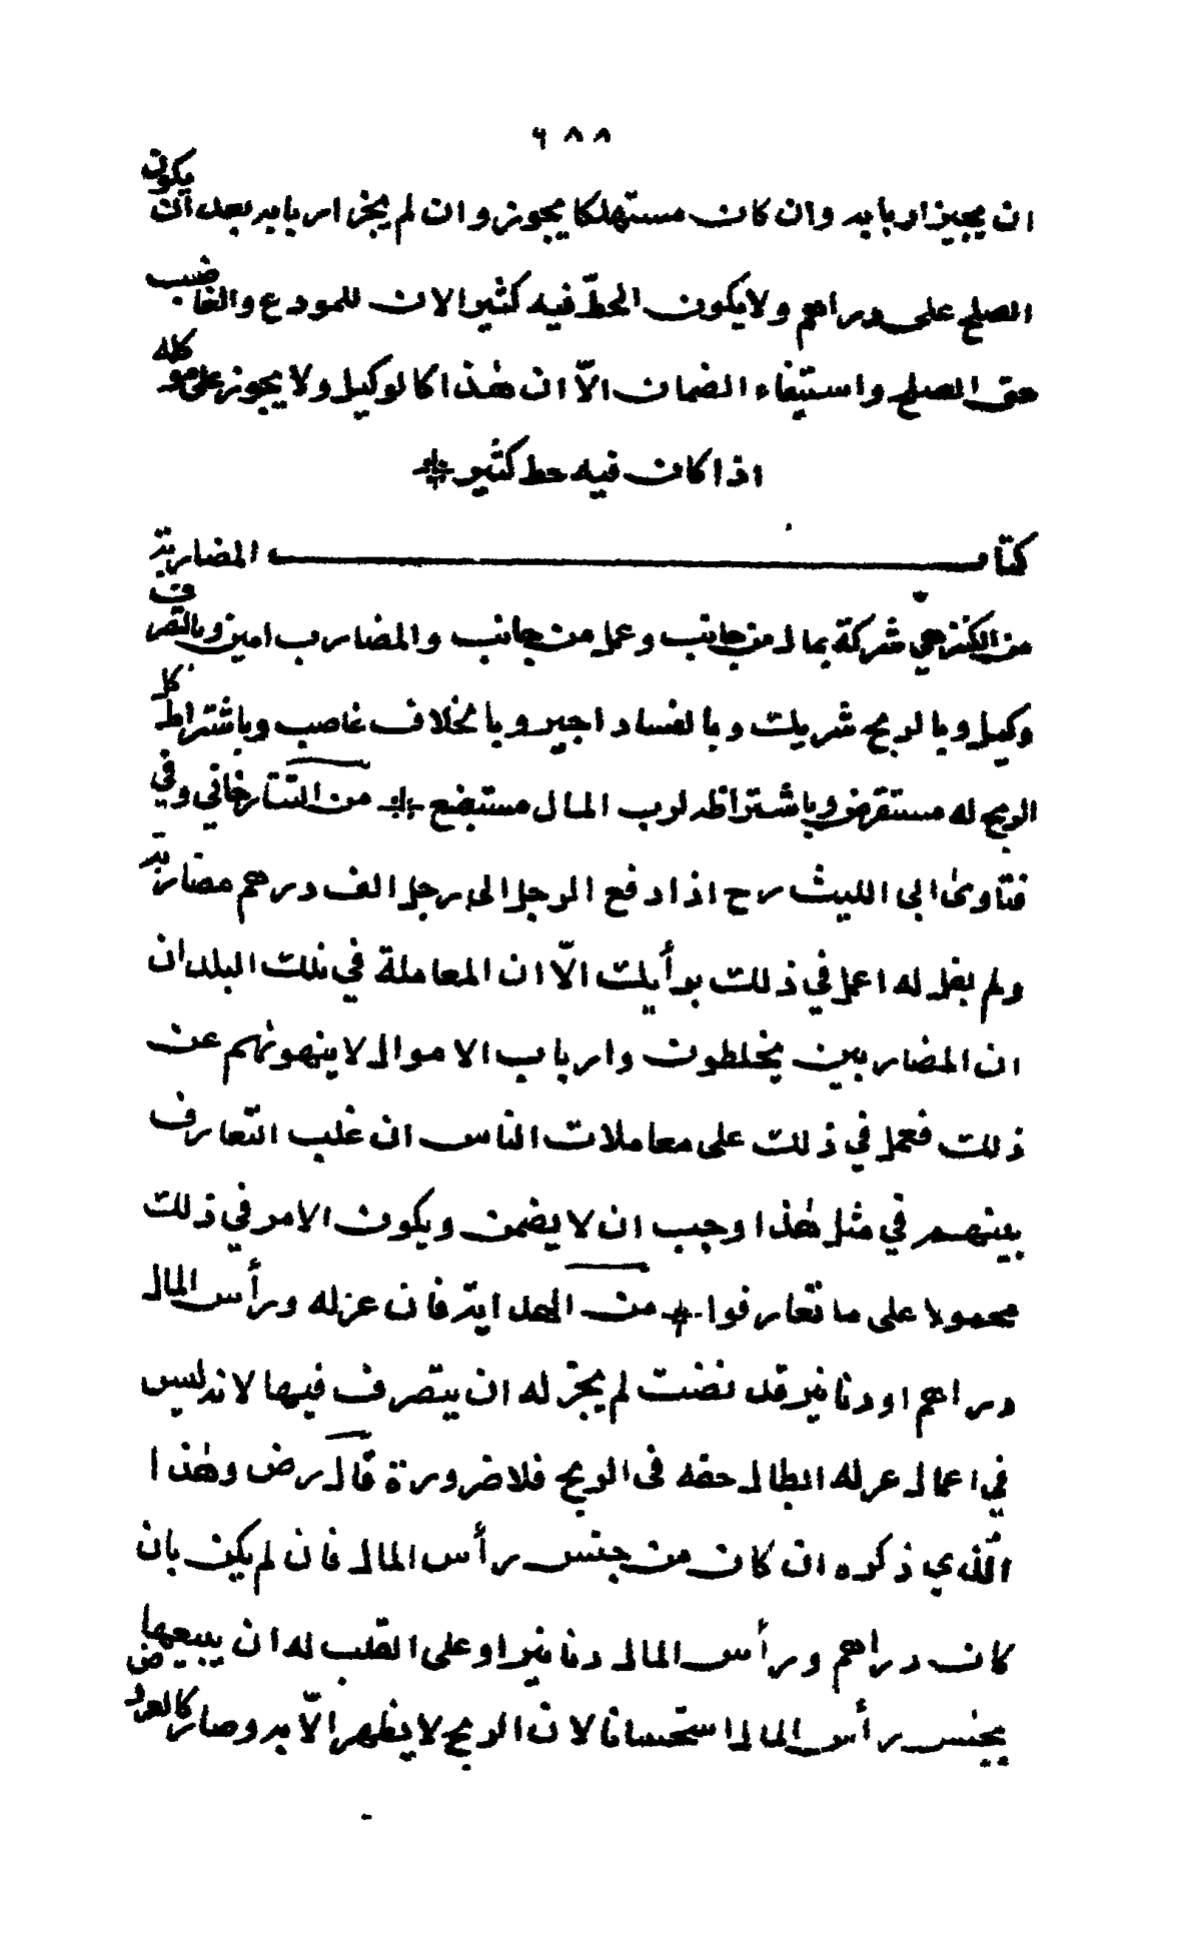 ٦٨٨
ان يجيز اربابه وان كان مستهلكا يجوز وان لم يجز اربابه بعد ان يكون
الصلح على دراهم ولا يكون الحطّ فيه كثيرا لان للمودع والغاصب
حق الصلح واستيفاء الضمان الاّ ان هذا كالوكيل ولا يجوز على موكله
اذا كان فيه حط كثير
كتاب المضاربة
من الكنز هي شركة بمال من جانب وعمل من جانب والمضارب امين وبالتصرف
وكيل وبالربح شريك وبالفساد اجير وبالخلاف غاصب وباشتراط كل
الربح له مستقرض وباشتراطه لرب المال مستبضع من التتارخاني وفي
فتاوى ابى الليث رح اذا دفع الرجل الى رجل الف درهم مضاربة
ولم يقل له اعمل في ذلك برأيك الاّ ان المعاملة في تلك البلدان
ان المضاربين يخلطون وارباب الاموال لا ينهونهم عن
ذلك فعمل في ذلك على معاملات الناس ان غلب التعارف
بينهم في مثل هذا وجب ان لا يضمن ويكون الامر في ذلك
محمولا على ما تعارفوا من الهداية فان عزله ورأس المال
دراهم او دنانير قد نضت لم يجز له ان يتصرف فيها لانه ليس
في اعمال عزله ابطال حقه فى الربح فلا ضرورة قال رض وهذا
الّذي ذكره ان كان من جنس رأس المال فان لم يكن بان
كان دراهم ورأس المال دنانير او على القلب له ان يبيعها
بجنس رأس المال استحسانا لان الربح لا يظهر الاّ به وصار كالعروض